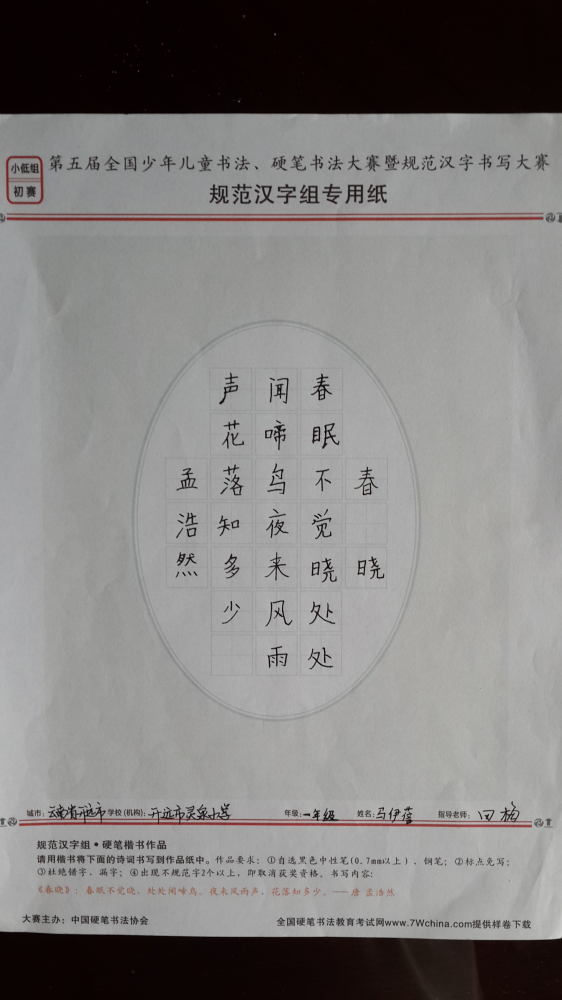 小低组
初赛
第五届全国少年儿童书法、硬笔书法大赛暨规范汉字书写大赛
规范汉字组专用纸
春晓
春眠不觉晓处处
闻啼鸟夜来风雨
声花落知多少
孟浩然
城市：云南省开远市 学校(机构)：开远市灵泉小学 年级：一年级 姓名：马伊蓓 指导老师：田梅
规范汉字组·硬笔楷书作品
请用楷书将下面的诗词书写到作品纸中。作品要求：①自选黑色中性笔(0.7mm以上)、钢笔；②标点免写；
③杜绝错字、漏字；④出现不规范字2个以上，即取消获奖资格。书写内容：
《春晓》：春眠不觉晓，处处闻啼鸟。夜来风雨声，花落知多少。——唐 孟浩然
大赛主办：中国硬笔书法协会 全国硬笔书法教育考试网www.7Wchina.com提供样卷下载